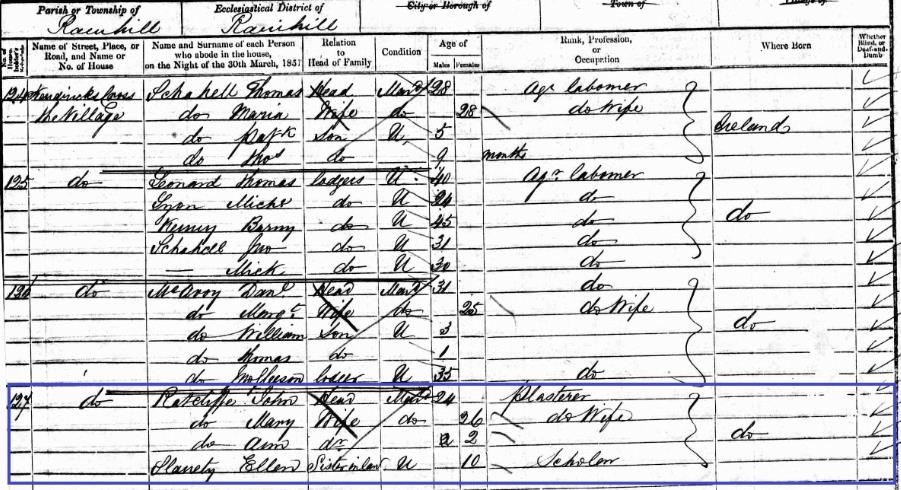 Parish or Township of Ecclesiastical District of City or Borough of Town of
Rainhill Rainhill
Name of Street, Place, or Road, and Name or No. of House Name and Surname of each Person who abode in the house, on the Night of the 30th March, 1851 Relation to Head of Family Condition Age of Males Females Rank, Profession, or Occupation Where Born Whether Blind, or Deaf-and-Dumb
124 Schahell Thomas Head Mard 28 Agr labomer
the Village do Maria Wife do 28 do Wife
do Patk Son U 5 Ireland
do Thos do 9 months
125 do Leonard Thomas lodgers U 40 Agr labomer
Michl do U 24 do
Barny do U 45 do do
Schahell Jno do U 31 do
— Mick do U 30 do
126 do McAvoy Danl Head Mard 31 do
do Margt Wife do 25 do Wife
do William Son U 3 do
do Thomas do 1
do lodger U 35 do
127 do Ratcliffe John Head Mard 24 Plasterer
do Mary Wife do 26 do Wife
do Ann dr 2 do
Slanety Ellen Sister in law U 10 Scholar